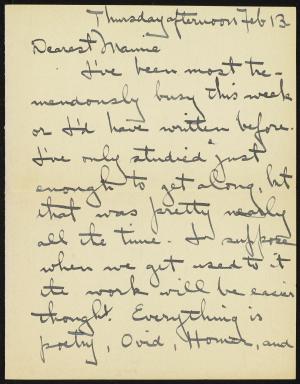 Thursday afternoon Feb 13
Dearest Mama
I've been most tre-
mendously busy this week
or I'd have written before.
I've only studied "just
enough to get along, but
that was pretty nearly
all the time. I suppose
when we get used to it
the work will be easier
thought. Everything is
poetry, Ovid, Homer, and